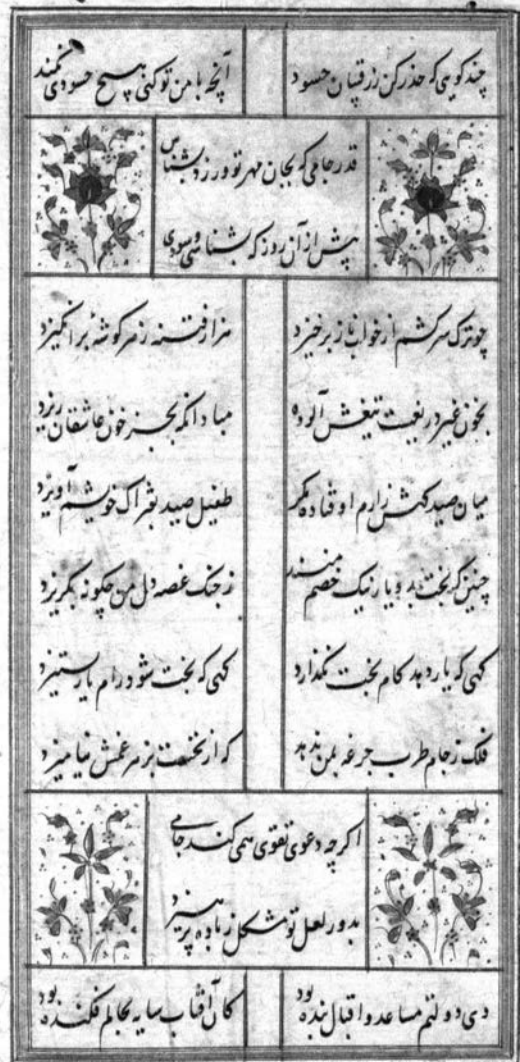 چند گویی که حذر کن ز رقیبان حسود آنچه با من تو کنی هیچ حسودی نکند
قدر جامی که بجان مهر تو ورزد بشناس
پیش از آن روز که بشناسی و سودی
چو ترک سرکشم از خواب ناز برخیزد هزار فتنه ز هر گوشهٔ برانگیزد
بخون غیر دریغست تیغش آلوده مباد آنکه بجز خون عاشقان ریزد
میان صیدگهش زارم اوفتاده مگر طفیل صید بفتراک خویشم آویزد
چنین که بخت بد و یار نیک خصم منند ز جنگ غصه دل من چگونه بگریزد
گهی که یار دهد کام بخت نگذارد گهی که بخت شود رام یار بستیزد
فلک ز جام طرب جرعه بمن ندهد که از نخست بزهر غمش نیامیزد
اگرچه دعوی تقوی همی کند جامی
بدور لعل تو مشکل ز باده پرهیزد
دی دولتم مساعد و اقبال بنده بود کان آفتاب سایه بحالم فکنده بود